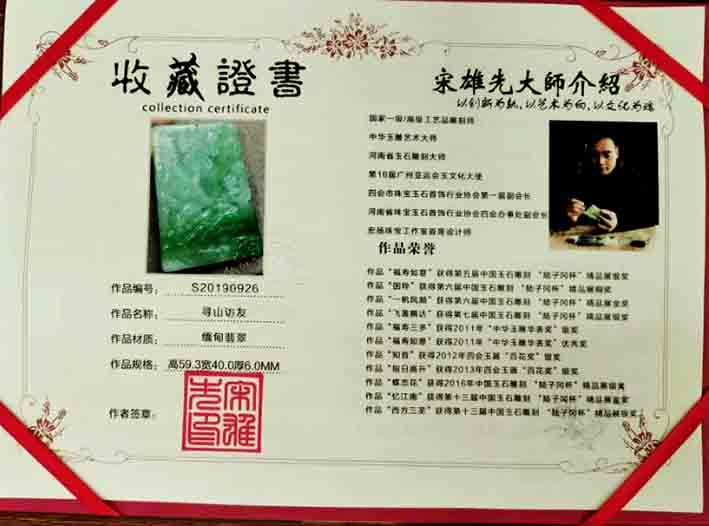 收藏證書
collection certificate
作品编号: S20190926
作品名称: 寻山访友
作品材质: 缅甸翡翠
作品规格: 高59.3宽40.0厚6.0MM
作者签章:
宋雄先印
宋雄先大師介紹
以创新为轨,以艺术为向,以文化为魂
国家一级/高级工艺品雕刻师
中华玉雕艺术大师
河南省玉石雕刻大师
第16届广州亚运会玉文化大使
四会市珠宝玉石首饰行业协会第一届副会长
河南省珠宝玉石首饰行业协会四会办事处副会长
宏扬珠宝工作室首席设计师
作品荣誉
作品“福寿如意”获得第五届中国玉石雕刻“陆子冈杯”精品展银奖
作品“国粹”获得第六届中国玉石雕刻“陆子冈杯”精品展铜奖
作品“一帆风顺”获得第六届中国玉石雕刻“陆子冈杯”精品展金奖
作品“飞黄腾达”获得第七届中国玉石雕刻“陆子冈杯”精品展银奖
作品“福寿三多”获得2011年“中华玉雕华表奖”银奖
作品“福寿如意”获得2011年“中华玉雕华表奖”优秀奖
作品“知音”获得2012年四会玉器“百花奖”银奖
作品“指日高升”获得2013年四会玉器“百花奖”银奖
作品“蝶恋花”获得2016年中国玉石雕刻“陆子冈杯”精品展银奖
作品“忆江南”获得第十三届中国玉石雕刻“陆子冈杯”精品展金奖
作品“西方三圣”获得第十三届中国玉石雕刻“陆子冈杯”精品展银奖